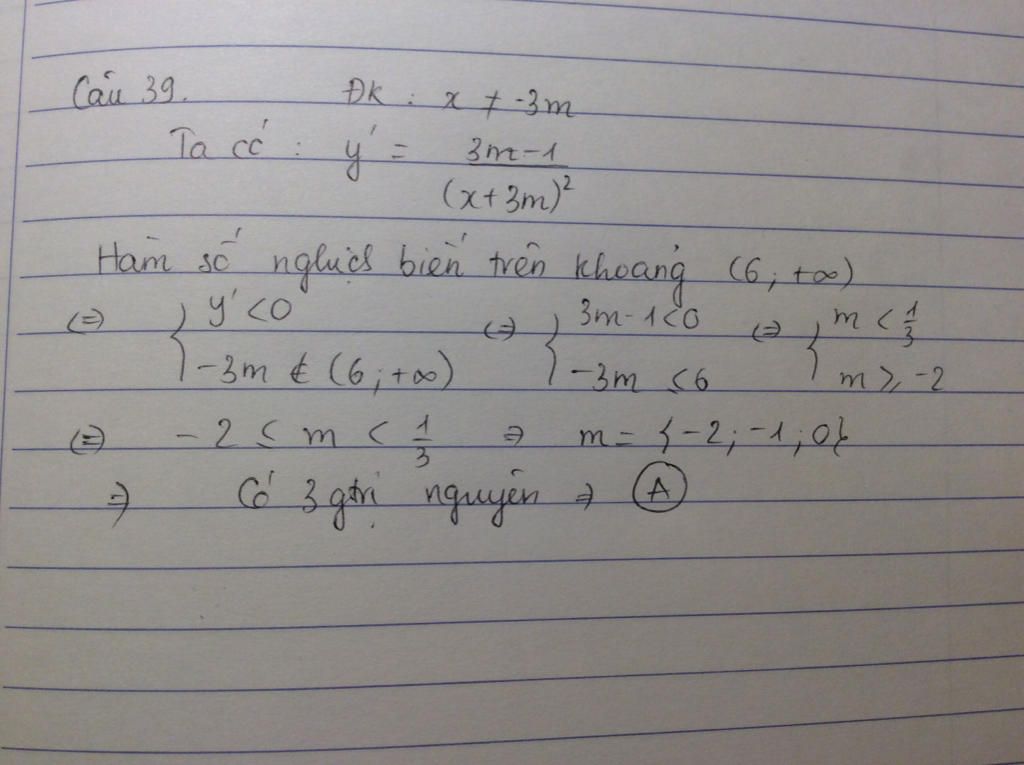 Câu 39. ĐK : x ≠ -3m
Ta có : y' = 3m-1 / (x+3m)²
Hàm số nghịch biến trên khoảng (6; +∞)
(=) { y' < 0 ; -3m ∉ (6; +∞) (=) { 3m-1<0 ; -3m ≤ 6 (=) { m < 1/3 ; m ≥ -2
(=) -2 ≤ m < 1/3 => m = {-2; -1; 0}
=> Có 3 gtrị nguyên => A